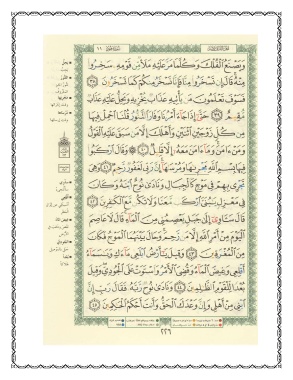 وَيَصْنَعُ ٱلْفُلْكَ وَكُلَّمَا مَرَّ عَلَيْهِ مَلَأٌ مِّن قَوْمِهِۦ سَخِرُوا۟
مِنْهُ قَالَ إِن تَسْخَرُوا۟ مِنَّا فَإِنَّا نَسْخَرُ مِنكُمْ كَمَا تَسْخَرُونَ ٣٨
فَسَوْفَ تَعْلَمُونَ مَن يَأْتِيهِ عَذَابٌ يُخْزِيهِ وَيَحِلُّ عَلَيْهِ عَذَابٌ
مُّقِيمٌ ٣٩ حَتَّىٰٓ إِذَا جَآءَ أَمْرُنَا وَفَارَ ٱلتَّنُّورُ قُلْنَا ٱحْمِلْ فِيهَا
مِن كُلٍّ زَوْجَيْنِ ٱثْنَيْنِ وَأَهْلَكَ إِلَّا مَن سَبَقَ عَلَيْهِ ٱلْقَوْلُ
وَمَنْ ءَامَنَ وَمَآ ءَامَنَ مَعَهُۥٓ إِلَّا قَلِيلٌ ٤٠ وَقَالَ ٱرْكَبُوا۟
فِيهَا بِسْمِ ٱللَّهِ مَجْر۪ىٰهَا وَمُرْسَىٰهَآ إِنَّ رَبِّى لَغَفُورٌ رَّحِيمٌ ٤١ وَهِىَ
تَجْرِى بِهِمْ فِى مَوْجٍ كَٱلْجِبَالِ وَنَادَىٰ نُوحٌ ٱبْنَهُۥ وَكَانَ
فِى مَعْزِلٍ يَٰبُنَىَّ ٱرْكَب مَّعَنَا وَلَا تَكُن مَّعَ ٱلْكَٰفِرِينَ ٤٢
قَالَ سَـَٔاوِىٓ إِلَىٰ جَبَلٍ يَعْصِمُنِى مِنَ ٱلْمَآءِ قَالَ لَا عَاصِمَ
ٱلْيَوْمَ مِنْ أَمْرِ ٱللَّهِ إِلَّا مَن رَّحِمَ وَحَالَ بَيْنَهُمَا ٱلْمَوْجُ فَكَانَ
مِنَ ٱلْمُغْرَقِينَ ٤٣ وَقِيلَ يَٰٓأَرْضُ ٱبْلَعِى مَآءَكِ وَيَٰسَمَآءُ
أَقْلِعِى وَغِيضَ ٱلْمَآءُ وَقُضِىَ ٱلْأَمْرُ وَٱسْتَوَتْ عَلَى ٱلْجُودِىِّ وَقِيلَ
بُعْدًا لِّلْقَوْمِ ٱلظَّٰلِمِينَ ٤٤ وَنَادَىٰ نُوحٌ رَّبَّهُۥ فَقَالَ رَبِّ إِنَّ
ٱبْنِى مِنْ أَهْلِى وَإِنَّ وَعْدَكَ ٱلْحَقُّ وَأَنتَ أَحْكَمُ ٱلْحَٰكِمِينَ ٤٥
٢٢٦